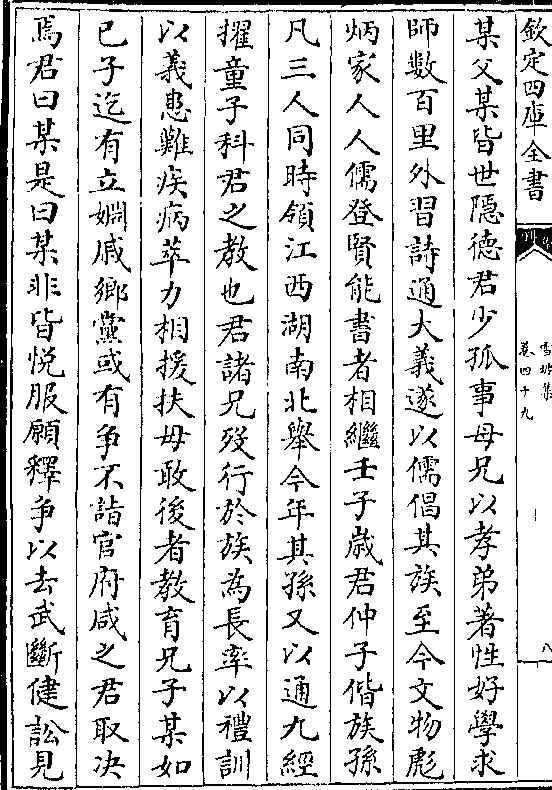 欽定四庫全書
雪坡集
卷四十九
八
某父某皆世隱德君少孤事母兄以孝弟著性好學求
師數百里外習詩通大義遂以儒倡其族至今文物彪
炳家人人儒登賢能書者相繼壬子歳君仲子偕族孫
凡三人同時領江西湖南北舉今年其孫又以通九經
擢童子科君之教也君諸兄歿行於族為長率以禮訓
以義患難疾病萃力相援扶毋敢後者教育兄子某如
已子迄有立婣戚鄉黨或有爭不詣官府咸之君取决
焉君曰某是曰某非皆悦服願釋爭以去武斷健訟見